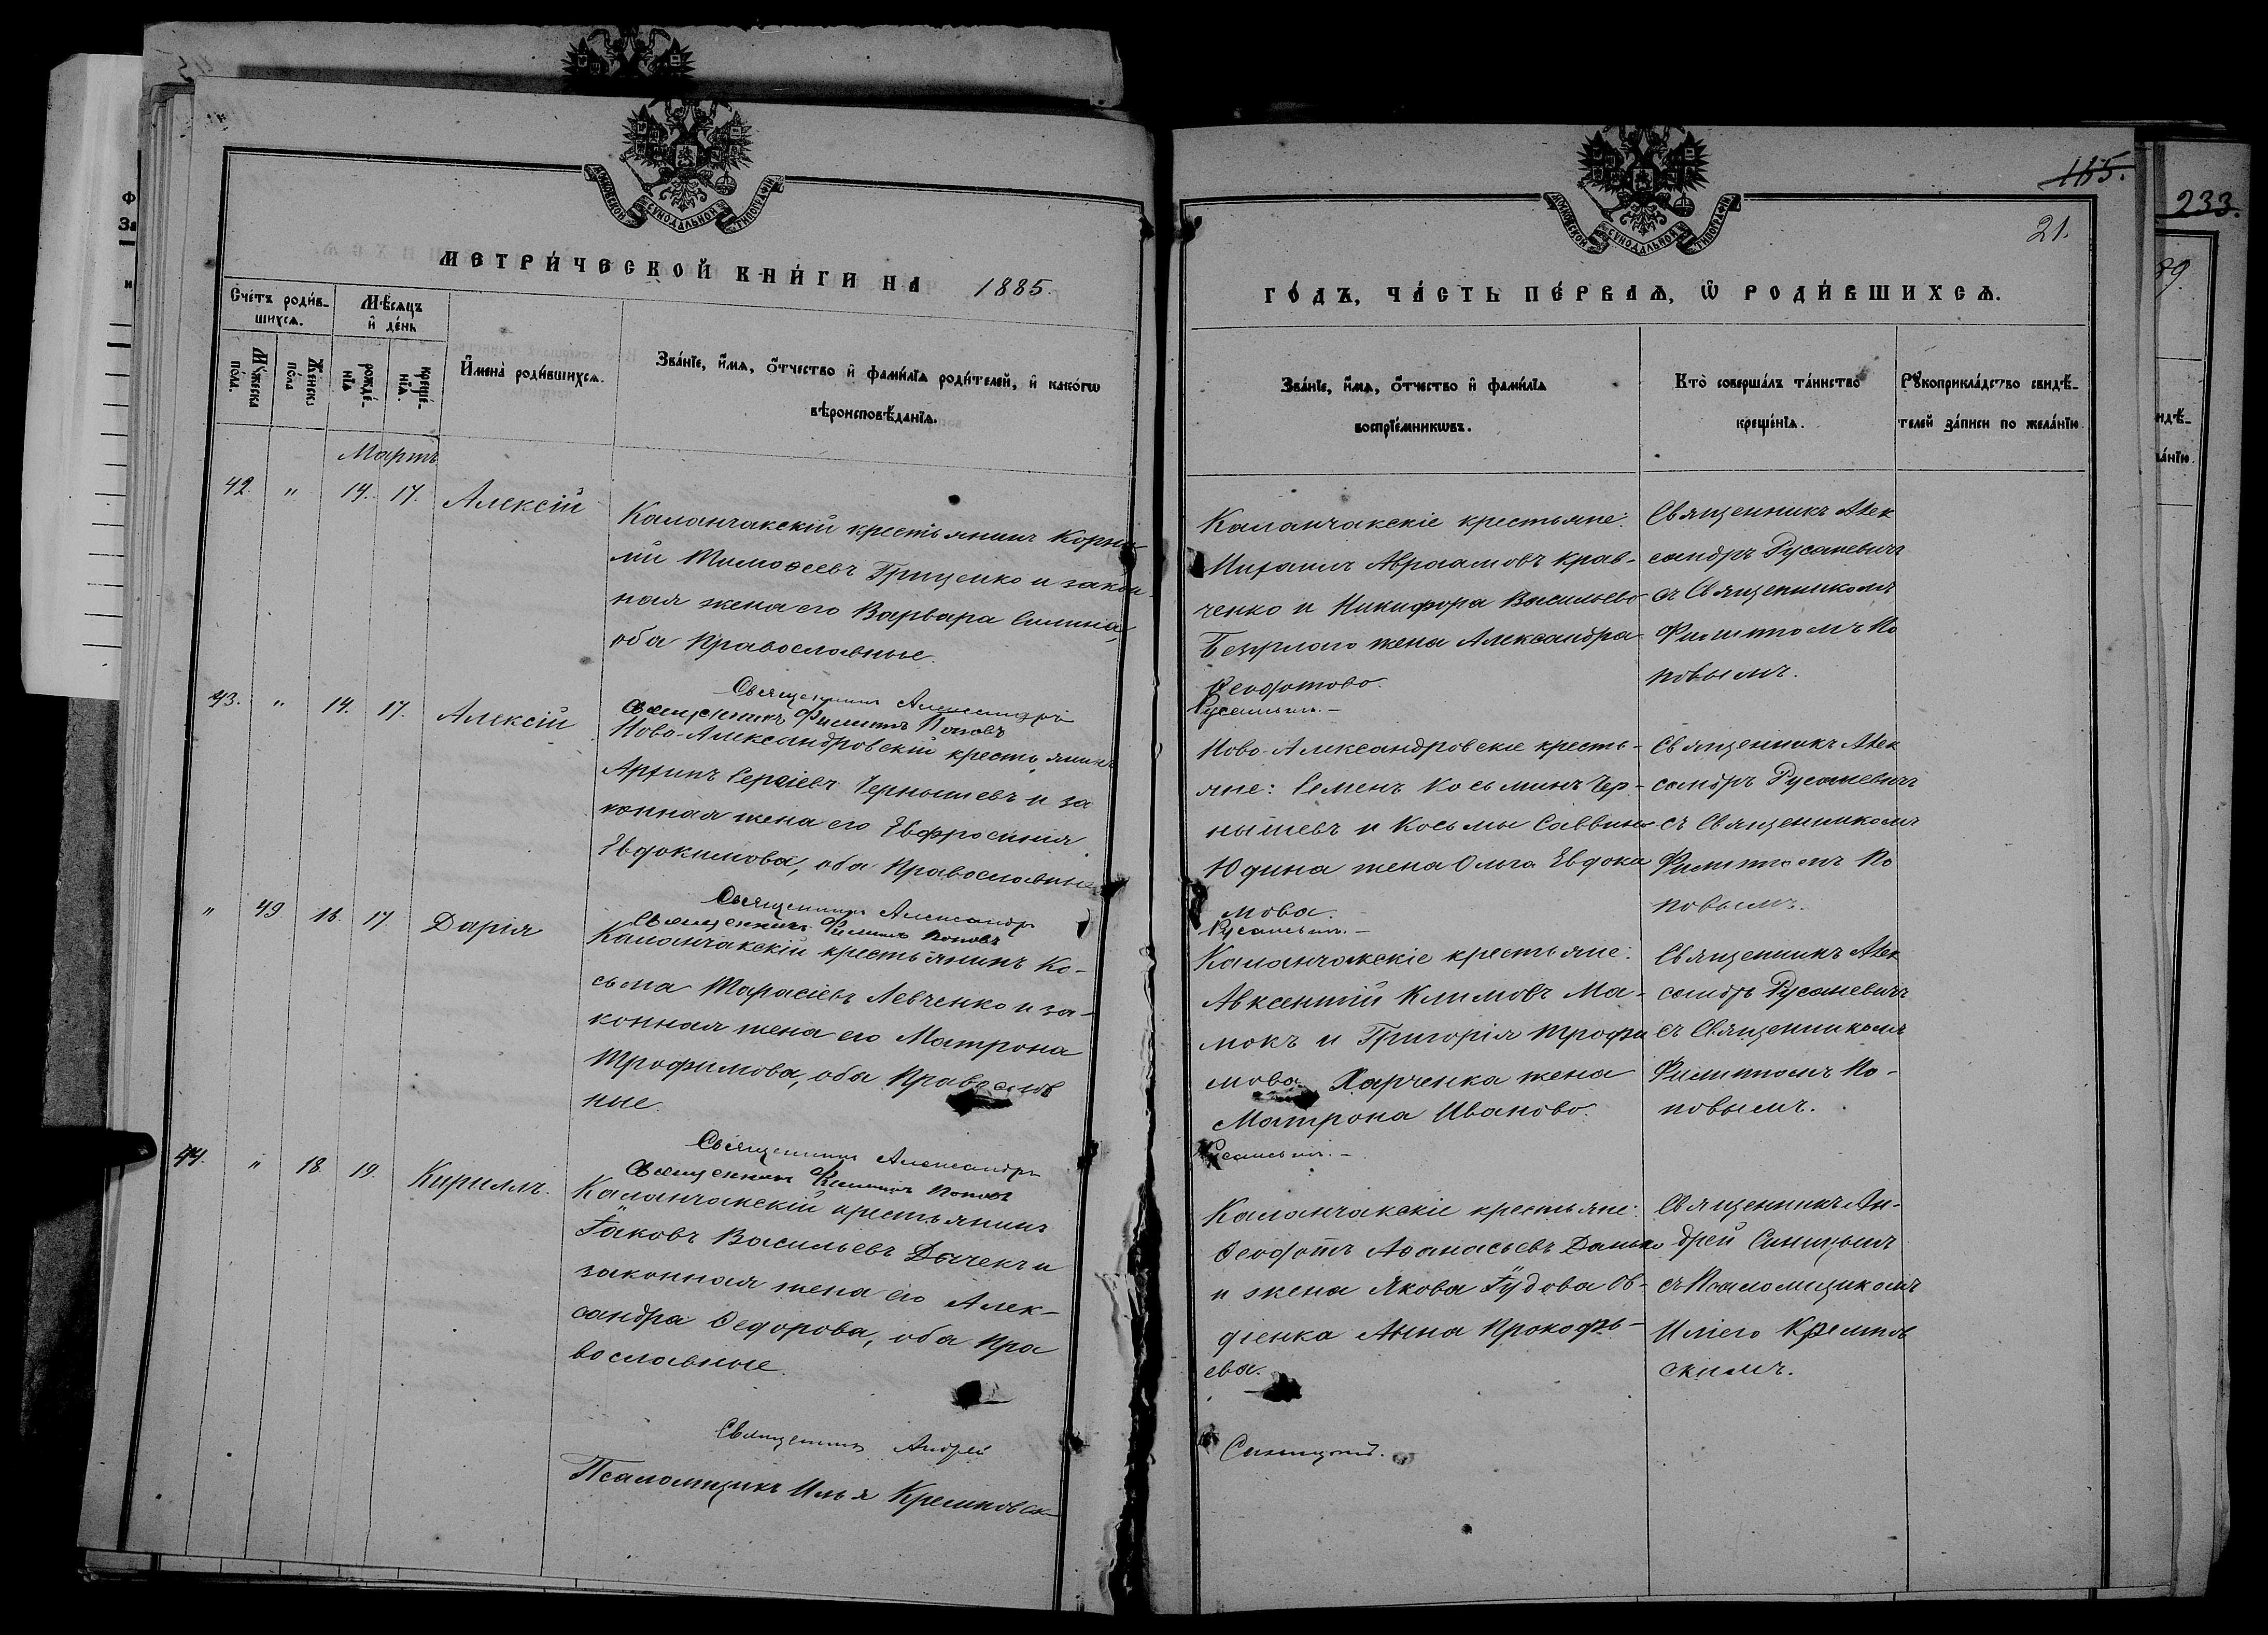 МОСКОВСКОЙ СУНОДАЛЬНОЙ ТИПОГРАФІИ
МЕТРИ́ЧЕСКОЙ КНИ́ГИ НА 1885.
Сче́тъ роди́в-
шихсѧ.
Мѣ́сѧцъ
и҆ де́нь
Мꙋ́жеска
по́ла.
Же́нска
по́ла
рожде́-
нїѧ
креще́-
нїѧ.
И҆мена̀ роди́вшихсѧ.
Зва́нїе, и҆́мѧ, ѻ҆́тчество и҆ фамі́лїѧ роди́телей, и҆ како́гѡ
вѣроисповѣ́данїѧ.
Мартъ
42. " 14. 17. Алексій
Каланчакскій крестьянинъ Корни-
лій Тимоѳеевъ Гриценко и закон-
ная жена его Варвара
оба Православные.
Священникъ Александръ
Священникъ Филиппъ Поповъ
43. " 14. 17. Алексій
Ново-Александровскій крестьянинъ
Архипъ Сергіевъ Чернышевъ и за
конная жена его Евфросинія
Евдокимова, оба Православные
Священникъ Александръ
Священникъ Филиппъ Поповъ
" 49 16. 17. Дарія
Каланчакскій крестьянинъ Ко-
сьма Тарасіевъ Левченко и за-
конная жена его Матрона
Трофимова, оба Православ
ные.
Священникъ Александръ
Священникъ Филиппъ Поповъ
44. " 18. 19. Кириллъ.
Каланчакскій крестьянинъ
Іаковъ Васильевъ и
законная жена его Алек-
сандра Ѳедорова, оба Пра
вославные.
Священникъ Андрей
Псаломщикъ Илья Кремповск
185.
21.
МОСКОВСКОЙ СУНОДАЛЬНОЙ ТИПОГРАФІИ
ГО́ДЪ, ЧА́СТЬ ПЕ́РВАѦ, Ѡ҆ РОДИ́ВШИХСѦ.
Зва́нїе, и҆́мѧ, ѻ҆́тчество и҆ фамі́лїѧ
воспрїе́мникѡвъ.
Кто̀ соверша́лъ та́инство
креще́нїѧ.
Рꙋкоприкла́дство свидѣ́-
телей за́писи по жела́нїю.
Каланчакскіе крестьяне:
Михаилъ Авраамовъ Крав-
ченко и Никифора Васильево
жена Александра
Ѳеодотова.
Русаневичъ.
Священникъ Алек
сандръ Русаневичъ
съ Священникомъ
Филиппомъ По
повымъ.
Ново-Александровскіе кресть-
яне: Семенъ Косьминъ Чер-
нышевъ и Косьмы Саввина
Юдина жена Ольга Евдоки
мова.
Русаневичъ.
Священникъ Алек
сандръ Русаневичъ
съ Священникомъ
Филиппомъ По
повымъ.
Каланчакскіе крестьяне:
Авксентій Климовъ Ма-
мокъ и Григорія Трофи
мова Харченка жена
Матрона Иванова.
Русаневичъ.
Священникъ Алек
сандръ Русаневичъ
съ Священникомъ
Филиппомъ По-
повымъ.
Каланчакскіе крестьяне:
Ѳеодотъ Аѳанасьевъ Данько
и жена Якова Гудова Ов-
діенка Анна Прокофь-
ева.
Синицынъ.
Священникъ Ан-
дрей Синицынъ
съ Псаломщикомъ
Иліею Кремпов
скимъ.
233.
89